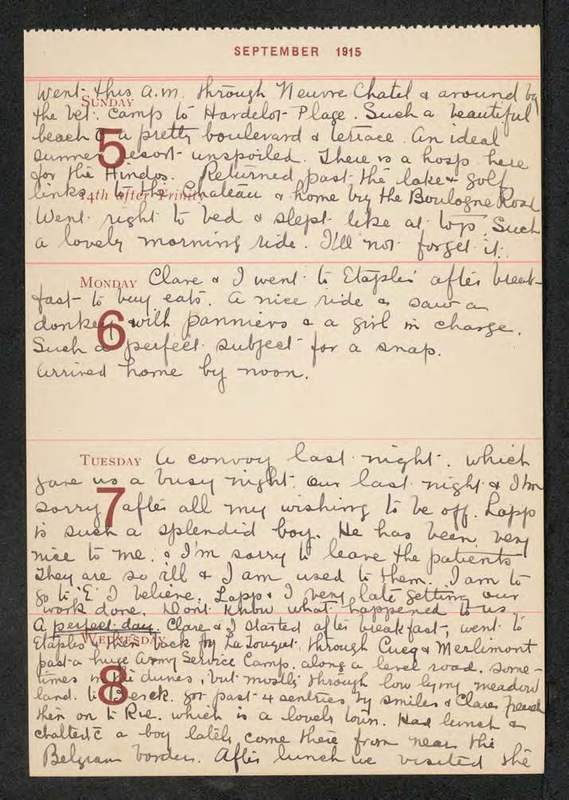 SEPTEMBER 1915
Went this a.m. through Neuvre Chatel & around by
SUNDAY
the Vet. camp to Hardelot Plage. Such a beautiful
5
beach & a pretty boulevard & terrace. An ideal
summer resort unspoiled. There is a hosp. here
for the Hindos. Returned past the lake & golf
14th after Trinity
links to the Chateau & home by the Boulogne Road
Went right to bed & slept like at top. Such
a lovely morning ride. I'll not forget it.
MONDAY Clare & I went to Etaples after break-
fast to buy eats. A nice ride & saw a
donkey with panniers & a girl in charge.
6
Such a perfect subject for a snap.
Arrived home by noon.
TUESDAY A convoy last night. which
gave us a busy night. our last night & I'm
7
sorry after all my wishing to be off. Lapp
is such a splendid boy. He has been very
nice to me. & I'm sorry to leave the patients
They are so ill & I am used to them. I am to
go to "E" I believe. Lapp & I very late getting our
work done. Don't know what happened to us.
A perfect day. Clare & I started after breakfast, went to
WEDNESDAY
Etaples & then back by LeTouquet through Cucq & Merlimont
past a huge Army Service Camp. along a level road. some-
8
times in the dunes, but mostly through low lying meadow
land. to Berck. got past 4 sentries by smiles & Clares French
then on to Rue. which is a lovely town. Had lunch &
chatted c a boy lately come there from near the
Belgian border. After lunch we visited the